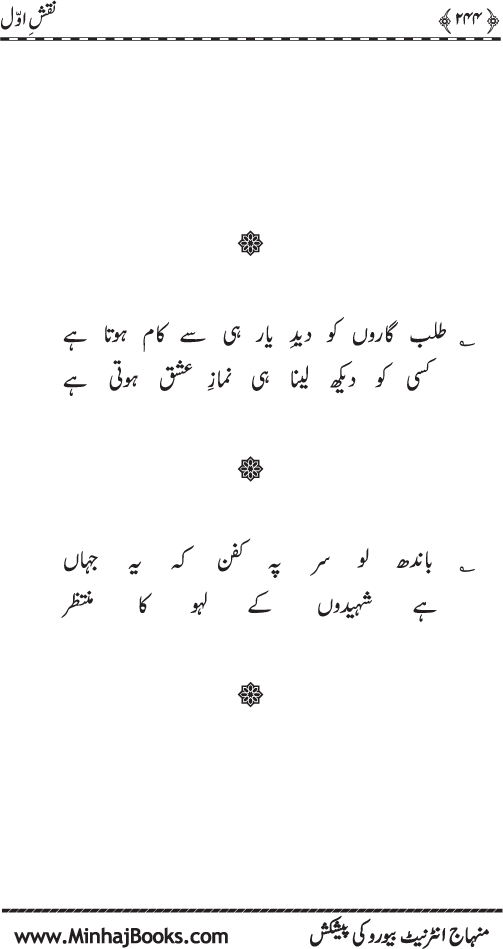 ﴿۲۴۴﴾ نقشِ اوّل
؎ طلب گاروں کو دیدِ یار ہی سے کام ہوتا ہے
کسی کو دیکھ لینا ہی نمازِ عشق ہوتی ہے
؎ باندھ لو سر پہ کفن کہ یہ جہاں
ہے شہیدوں کے لہو کا منتظر
منہاج انٹرنیٹ بیورو کی پیشکش www.MinhajBooks.com